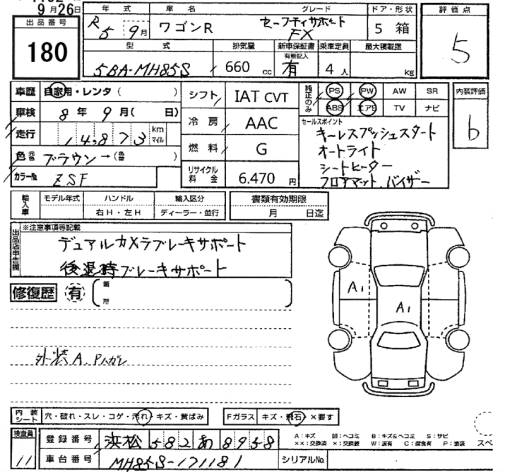 9月26日
出品番号 180
年式 R5 9月
ワゴンR
グレード セーフティサポート FX
ドア・形状 5 箱
評価点 5
型式 5BA-MH85S
排気量 660 cc
新車保証書 有無記入 有
乗車定員 4人
最大積載量 kg
車歴 自家用・レンタ( )
シフト IAT CVT
純正のみ PS PW AW SR
ABS エアB TV ナビ
内装評価 b
車検 8年 9月( 日)
冷房 AAC
セールスポイント
キーレスプッシュスタート
オートライト
シートヒーター
フロアマット バイザー
走行 14,873 km マイル
燃料 G
色 ブラウン→
カラーNo. ZSF
リサイクル料金 6.470円
輸入車 モデル年式 ハンドル 輸入区分
右H・左H ディーラー・並行
書類有効期限
月 日迄
※注意事項等記載
デュアルカメラブレーキサポート
後退時ブレーキサポート
修復歴 有
A1
A1
外装A
内装シート 穴・破れ・スレ・コゲ・汚れ・キズ・黄ばみ
Fガラス キズ・飛石・×要す
検査員 11
登録番号 浜松582あ8958
車台番号 MH85S-171181
シリアルNo.